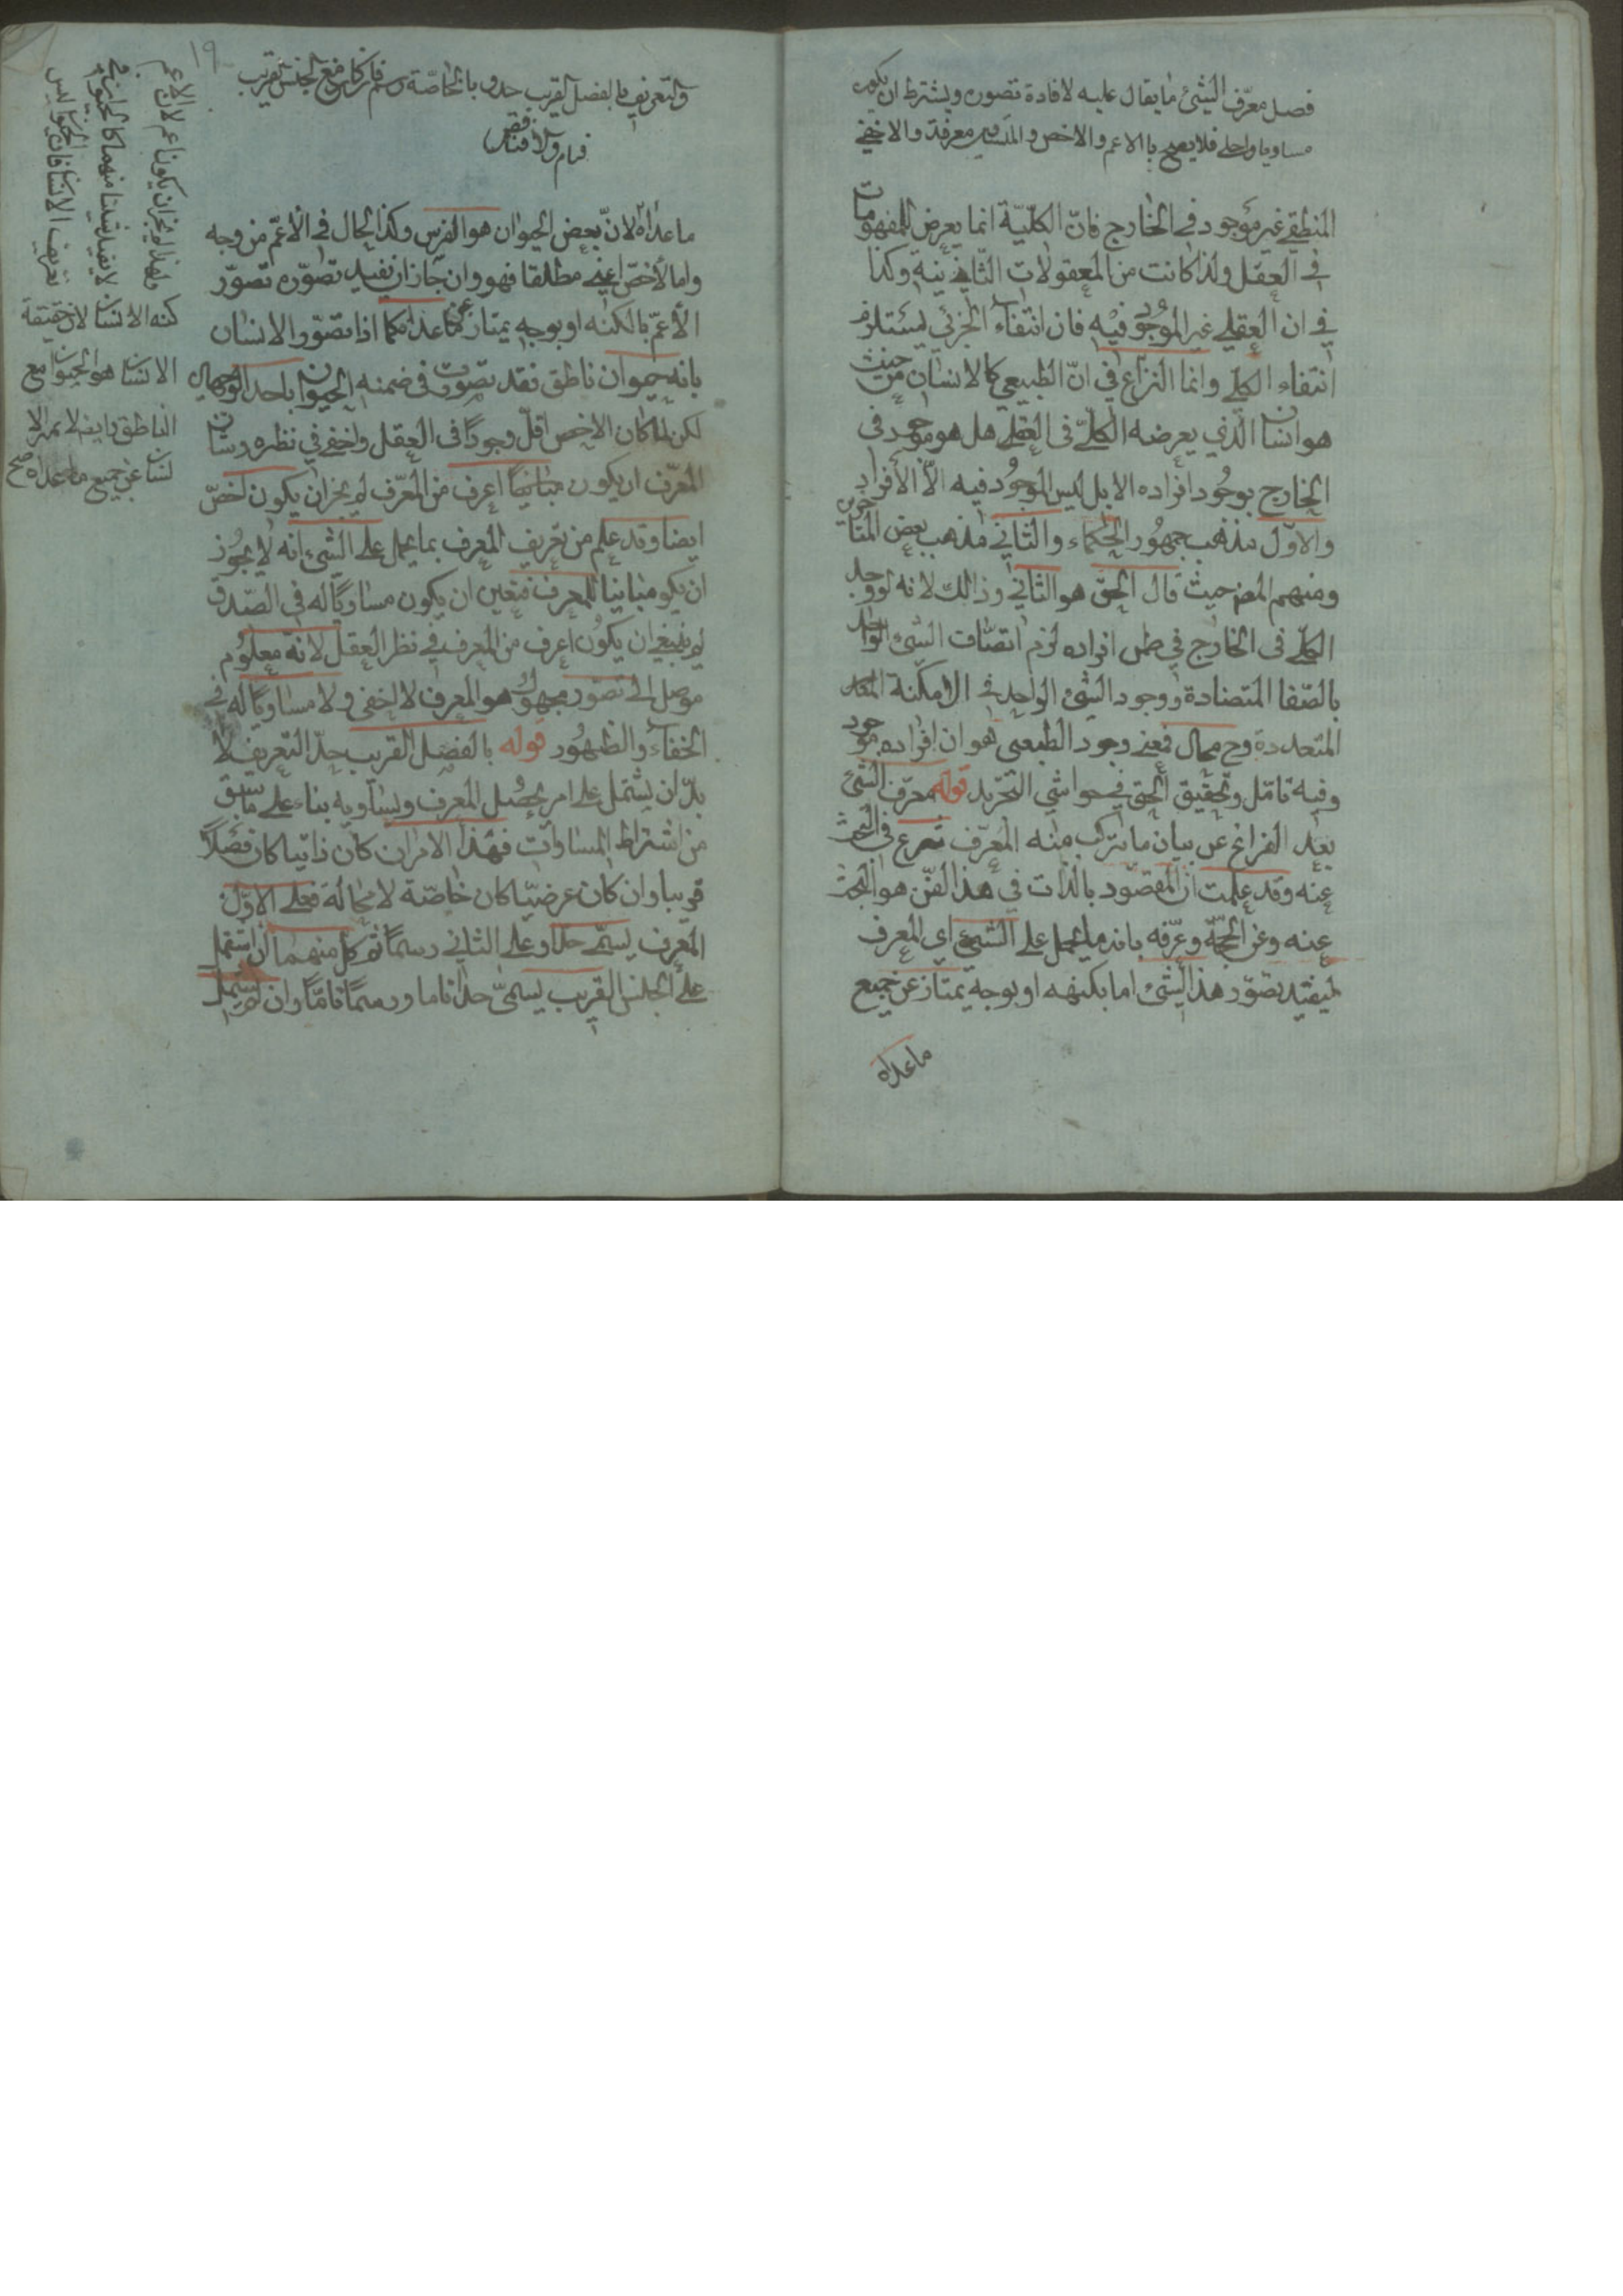 فصل معرّف الشئ ما يقال عليه لافادة تصوره ويشترط ان يكون
مساويا واجلى فلا يصح باالاعم والاخص والمساوى معرفة والاخفى
المنطقى غير موجود فى الخارج فانّ الكلّيّة انما يعرض للمفهومات
فى العقل ولذا كانت من المعقولات الثّانية وكذا
فى ان العقلى غير الموجود فيه فان انتفاء الجزئى يستلزم
انتفاء الكلّى وانما النزاع فى انّ الطبيعى كالانسان من حيث
هو انسان الّذى يعرضه الكلّى فى العقل هل هو موجود فى
الخارج بوجود افراده الا بل ليس الموجود فيه الّا الأفراد
والاوّل مذهب جمهور الحكماء والثّانى مذهب بعض المتأخرين
ومنهم المصـ حيث قال الحقّ هو الثانى وذالك لانه لو وجد
الكلّى فى الخارج فى ضمن افراده لزم اتصاف الشئ الواحد
بالصّفا المتضادة ووجود الشئ الواحد فى الامكنة
المتعددة وح محال فمعنى وجود الطبيعى هو ان افراده موجود
وفيه تامّل وتحقيق الحق فى حواشى التجريد قوله معرّف الشئ
بعد الفراغ عن بيان ما يتركب منه المعرّف شرع فى البحث
عنه وقد علمت ان المقصود بالذات فى هذا الفنّ هو البحث
عنه وعن الحجّة وعرّفه بانه ما يحمل على الشئ اى المعرف
ليفيد تصوّر هذا الشئ اما بكنهه او بوجه يمتاز عن جميع
ماعداه
١٩
والتعريف بالفصل القريب حد وبالخاصّة رسم فان كان مع الجنس القريب
فتام والا فناقص
ماعداه لانّ بعض الحيوان هو الفرس وكذا الحال فى الأعمّ من وجه
واما الأخصّ اعنى مطلقا فهو وان جاز ان يفيد تصوّره تصوّر
الأعمّ بالكنه او بوجه يمتاز عن ماعداه كما اذا تصوّر الانسان
بانه حيوان ناطق فقد تصورت فى ضمنه الحيوان باحد الوجهين
لكن لما كان الاخص اقلّ وجودًا فى العقل واخفى فى نظره وشان
المعرّف ان يكون اعرف من المعرّف لم يجز ان يكون اخصّ
ايضا وقد علم من تعريف المعرف بما يحمل على الشئ انه لا يجوز
ان يكو مباينا للمعرف فتعين ان يكون مساويًا له فى الصّدق
ثم ينبغى ان يكون اعرف من المعرف فى نظر العقل لانه معلوم
موصل الى تصور مجهول هو المعرف لا اخفى و لا مساويًا له فى
الخفاء والظهور قوله بالفصل القريب حدّ التعريف لا
بدّ ان يشتمل على امر يخصل المعرف ويساويه بناء على ما سبق
من اشتراط المساوات فهذا الامر ان كان ذاتيا كان فصلاً
قريبا وان كان عرضيّا كان خاصّة لا محالة فعلى الاوّل
المعرف يسمّى حدّا وعلى الثانى رسمًا ثم كلّ منهما ان اشتمل
على الجنس القريب يسمّى حدّا تاما ورسمًا تامّا وان لم يشتمل
الاعم
بهذا لم يجز ان يكون اعم لان
لا يفيد شيئا منهما كالحيوان فى
تعريف الانسان فان الحيوان ليس
كنه الانسان لان حقيقة
الانسان هو الحيوان مع
الناطق وايضا لا يميز الا
نسان عن جميع ماعداه صح